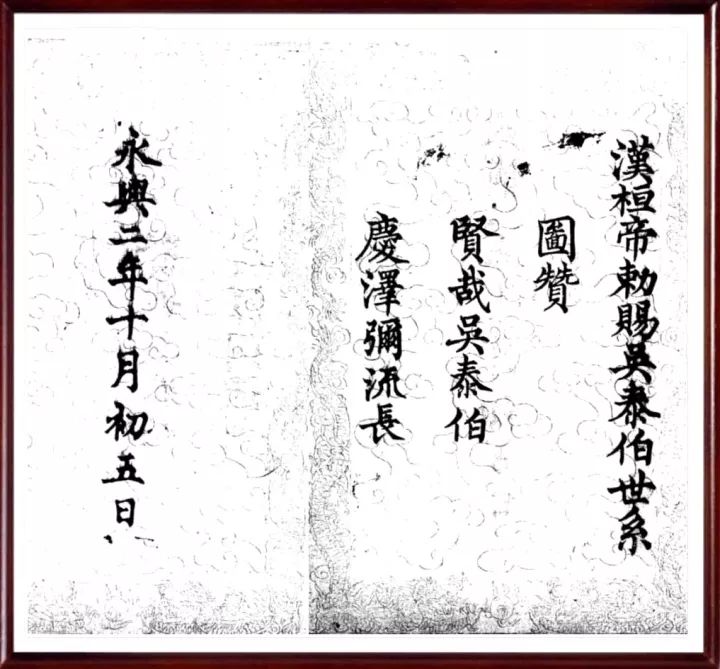 漢桓帝勅賜吳泰伯世系
圖贊
賢哉吳泰伯
慶澤彌流長
永興二年十月初五日